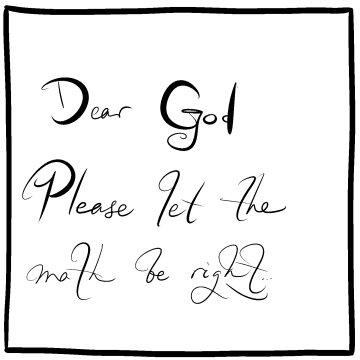 Dear God
Please let the
math be right...